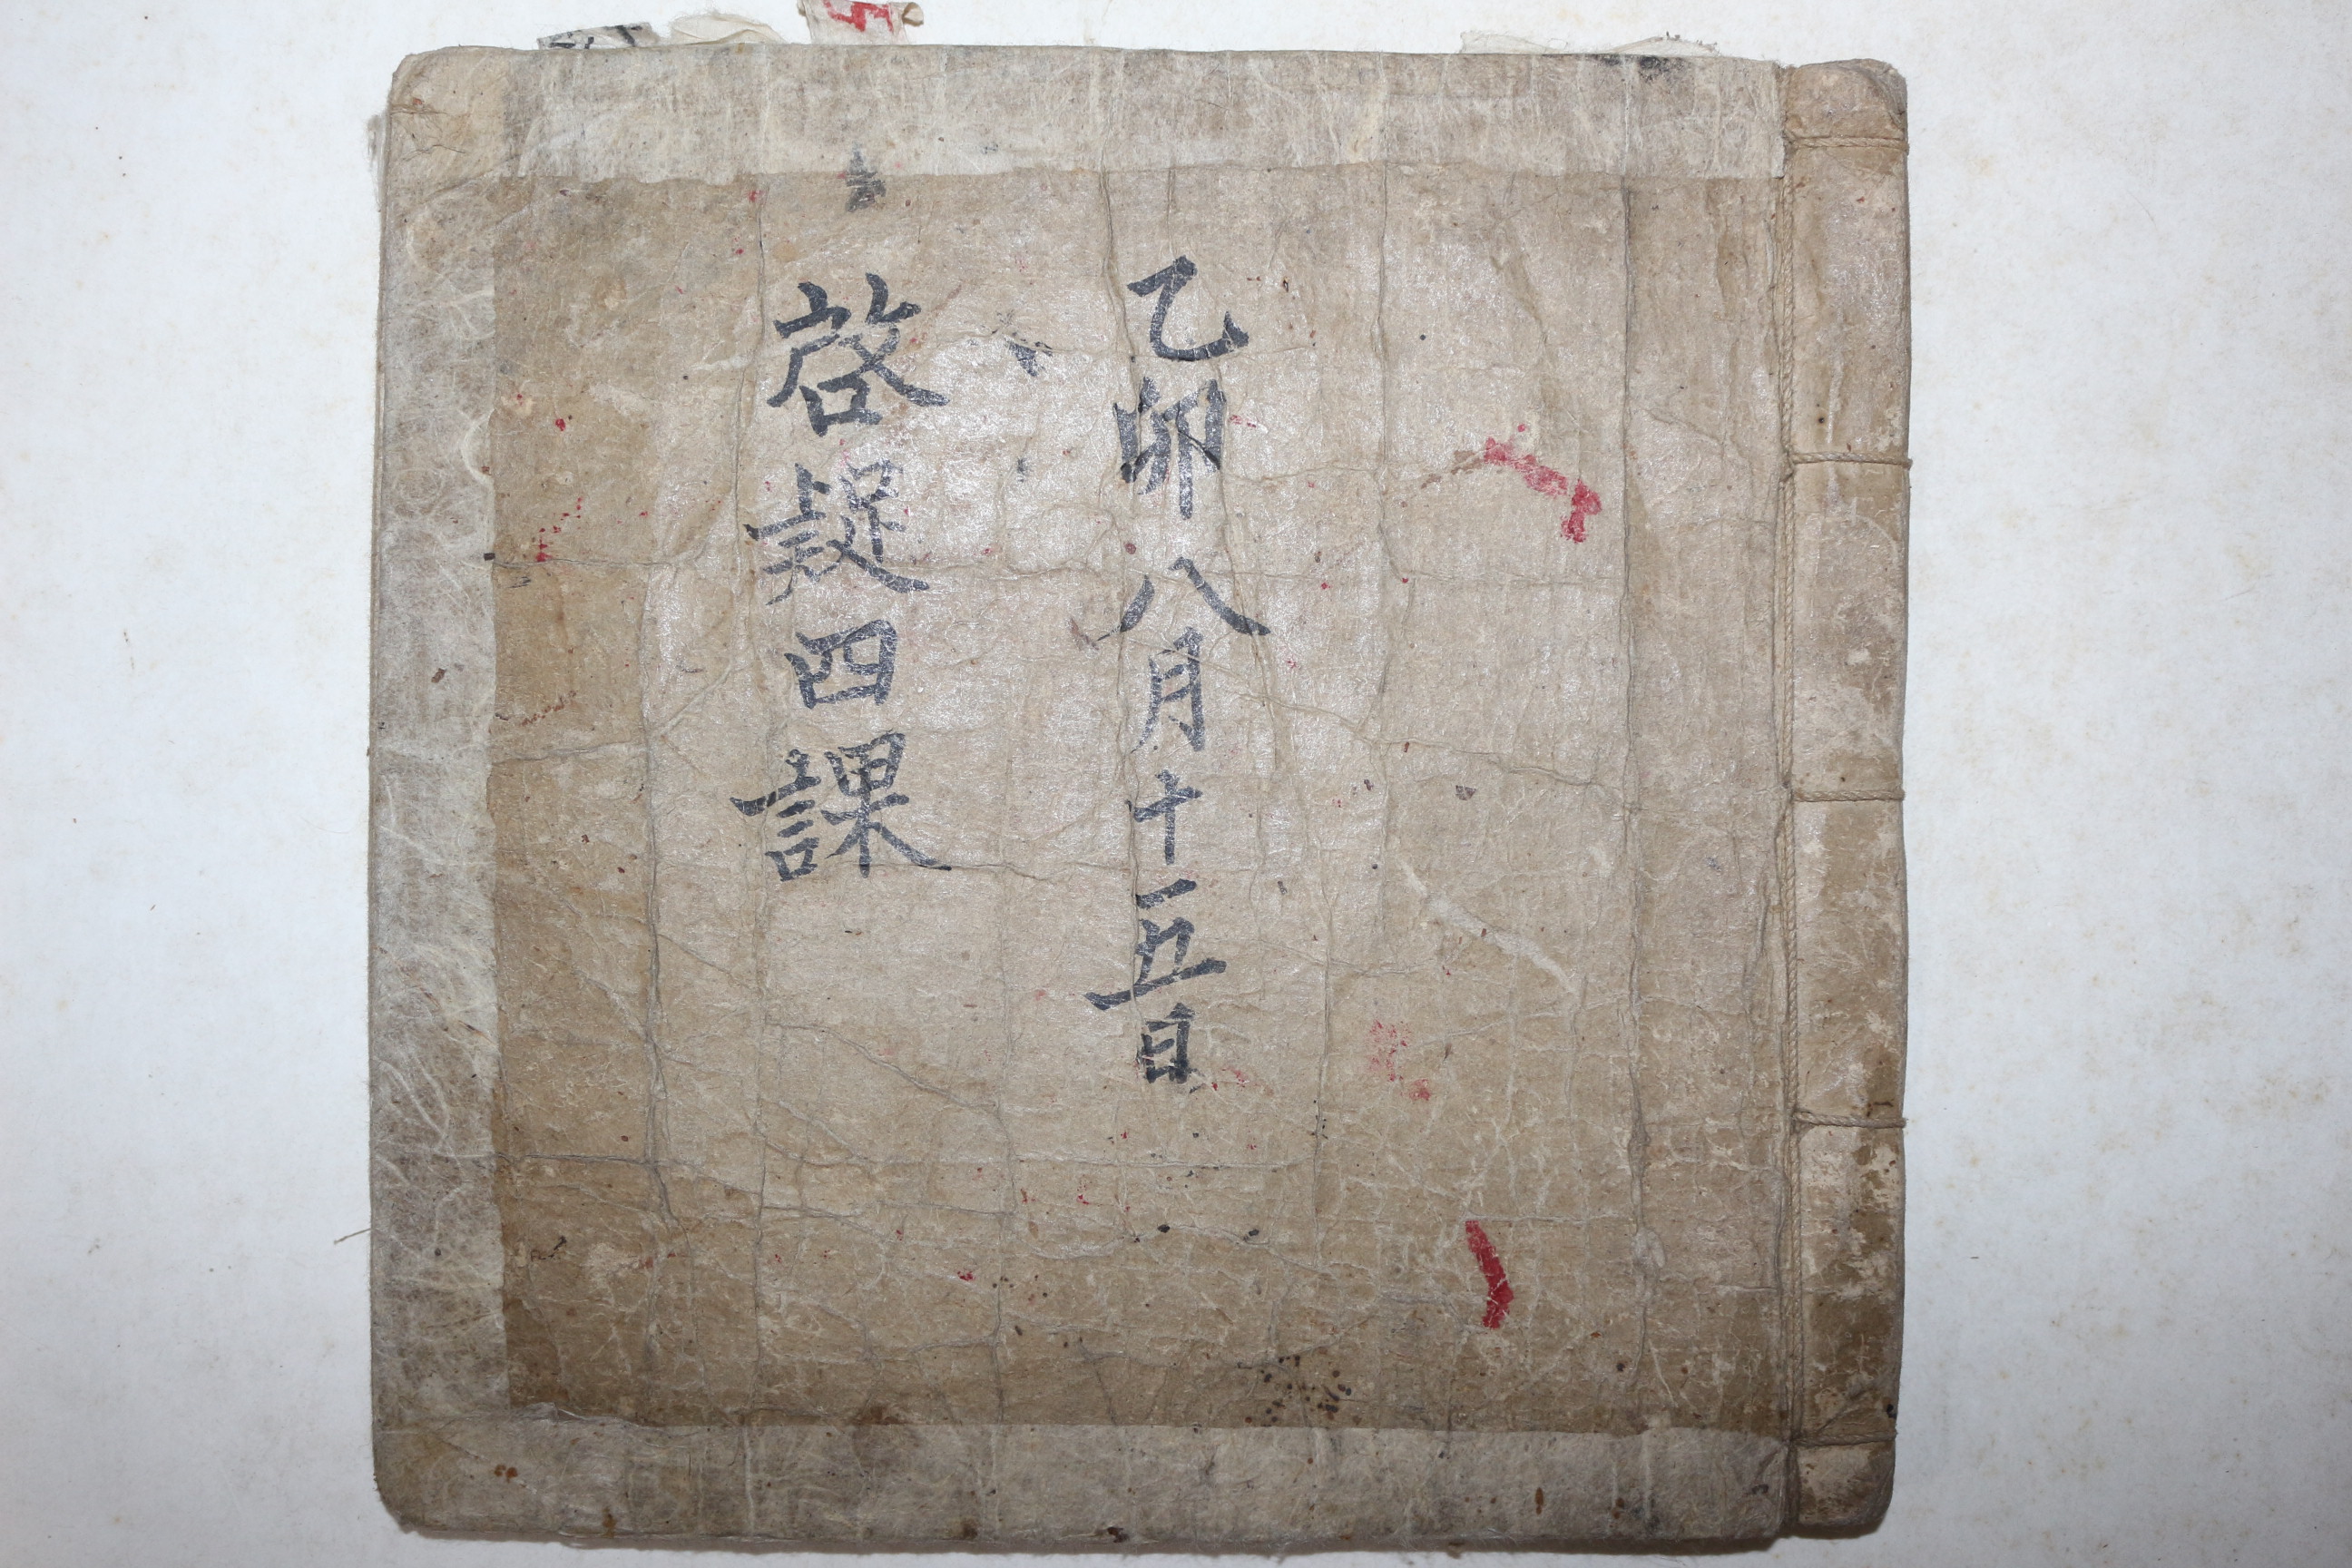 乙卯八月十五日
啓疑四課